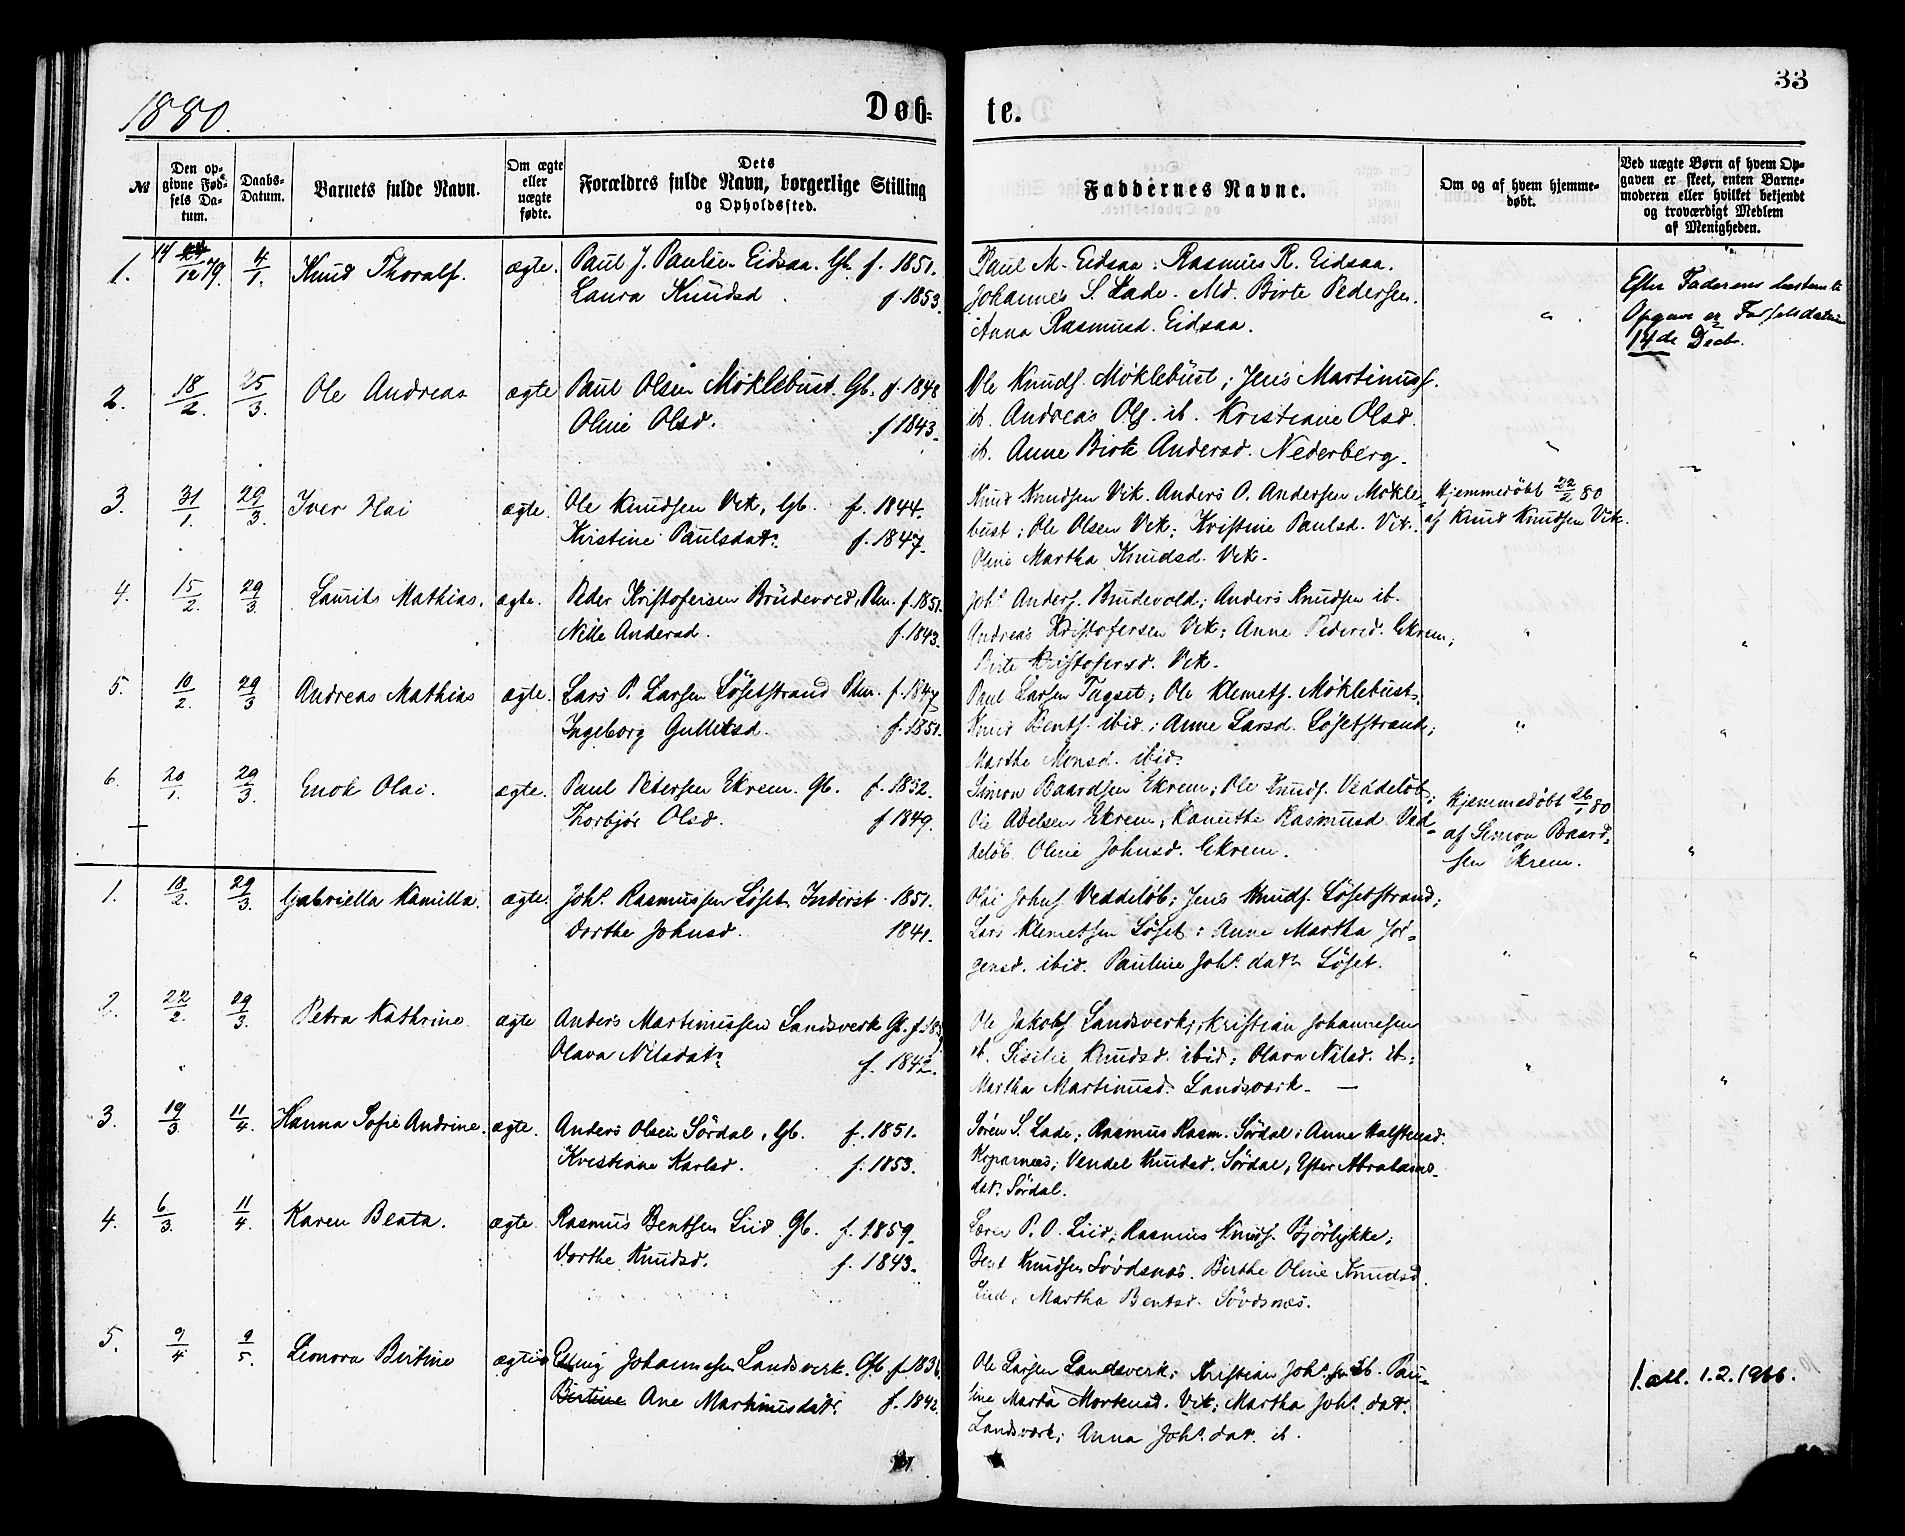 1880.
Døb-
te.
33
№
Den op-
givne Fød-
sels Da-
tum.
Daabs-
Datum.
Barnets fulde Navn.
Om ægte
eller
uægte
fødte.
Dets
Forældres fulde Navn, borgerlige Stilling
og Opholdssted.
Faddernes Navne.
Om og af hvem hjemme-
døbt.
Ved uægte Børn af hvem Op-
gaven er skeet, enten Barne-
moderen eller hvilket bekjendt
og troværdigt Medlem
af Menigheden.
1. 14 24/12 79. 4/1. Knud Thoralf. ægte. Paul J. Paulsen Eidsaa. Gb. f. 1851.
Laura Knudsd. f. 1853.
Paul M. Eidsaa; Rasmus R. Eidsaa.
Johannes S. Lade. Md. Birte Pedersen.
Anna Rasmusd. Eidsaa.
"
Efter Faderens bestemte
Opgave er Fødselsdatum
14de Decb.
2. 18/2. 25/3. Ole Andreas ægte Paul Olsen Møklebust. Gb. f. 1848
Oline Olsd. f 1843.
Ole Knuds. Møklebust; Jens Martinuss.
ib. Andreas Ols. ib. Kristiane Olsd.
ib. Anne Birte Andersd. Nederberg.
"
3. 31/1. 29/3. Iver Hai ægte. Ole Knudsen Vik, Gb. f. 1844.
Kirstine Paulsdatr. f. 1847.
Knud Knudsen Vik. Anders O. Andersen Møkle-
bust; Ole Olsen Vik; Kristine Paulsd. Vik.
Oline Martha Knudsd. Vik.
Hjemmedøbt 22/2 80
af Knud Knudsen Vik.
4. 15/2. 29/3. Laurits Mathias. ægte. Peder Kristofersen Brudevold, Pm. f. 1851.
Nille Andersd. f. 1843.
Johs. Anders. Brudevold; Anders Knudsen ib.
Andreas Kristofersen Vik; Anne Pedersd. Ekrem;
Birte Kristofersd. Vik.
"
"
5. 10/2. 29/3 Andreas Mathias ægte. Lars P. Larsen Løsetstrand Pm. f. 1847
Ingeborg Gulliksd. f. 1851.
Paul Larsen Tuset; Ole Klemets. Møklebust.
Knud Bents. ibid.; Anne Larsd. Løsetstrand;
Marthe Monsd. ibid.
"
"
6. 20/1. 29/3. Enok Olai. ægte. Paul Petersen Ekrem. Gb. f. 1832.
Thorbjør Olsd. f 1849.
Simon Baardsen Ekrem; Ole Knuds. Veddeløb;
Ole Abelsen Ekrem; Kanutte Rasmusd. Ved-
deløb. Oline Johnsd. Ekrem.
Hjemmedøbt 26/1 80
af Simon Baard-
sen Ekrem.
"
1. 18/2. 29/3. Gabriella Kamilla. ægte. Johs. Rasmussen Løset. Inderst. 1851.
Dorthe Johnsd. 1841.
Olai Johns. Veddeløb; Jens Knuds. Løsetstrand;
Lars Klemetsen Løset; Anne Martha Jør-
gensd. ibid. Pauline Johs. datr. Løset.
"
"
2. 22/2. 29/3. Petra Kathrine ægte Anders Martinussen Landsverk Gb. f.
Olava Nilsdatr. f. 1842.
Ole Jakobs Landsverk; Kristian Johannesen
ib. Sisilie Knudsd. ibid; Olava Nilsd. ib;
Martha Martinusd. Landsværk. —
"
"
3. 19/3. 11/4. Hanna Sofie Andrine. ægte. Anders Olsen Sørdal, Gb. f. 1851.
Kristiane Karlsd. f. 1853.
Søren S. Lade; Rasmus Rasm. Sørdal; Anne Halstensd.
Koparnes; Vendel Knudsd. Sørdal, Ester Abrahams-
datr. Sørdal.
4. 6/3. 11/4. Karen Beata. ægte. Rasmus Bentsen Liid. Gb. f. 1859.
Dorthe Knudsd. f. 1843.
Søren P. O. Liid; Rasmus Knuds. Bjørlykke;
Bent Knudsen Søvdsnes. Birthe Oline Knudsd.
Liid; Martha Bentsd. Søvdsnes.
5. 9/4 9/5. Leonora Birtine ægte Elling Johannesen Landsverk. Gb. f 1836.
Birtine Ane Martinusdatr. f. 1842.
Ole Larsen Landsverk; Kristian Johs. sn ib. Pau-
line Marta Mortensd. Vik; Martha Johs. datr.
Landsværk; Anna Johs. dat. ib.
1. att. 1.2.1966.